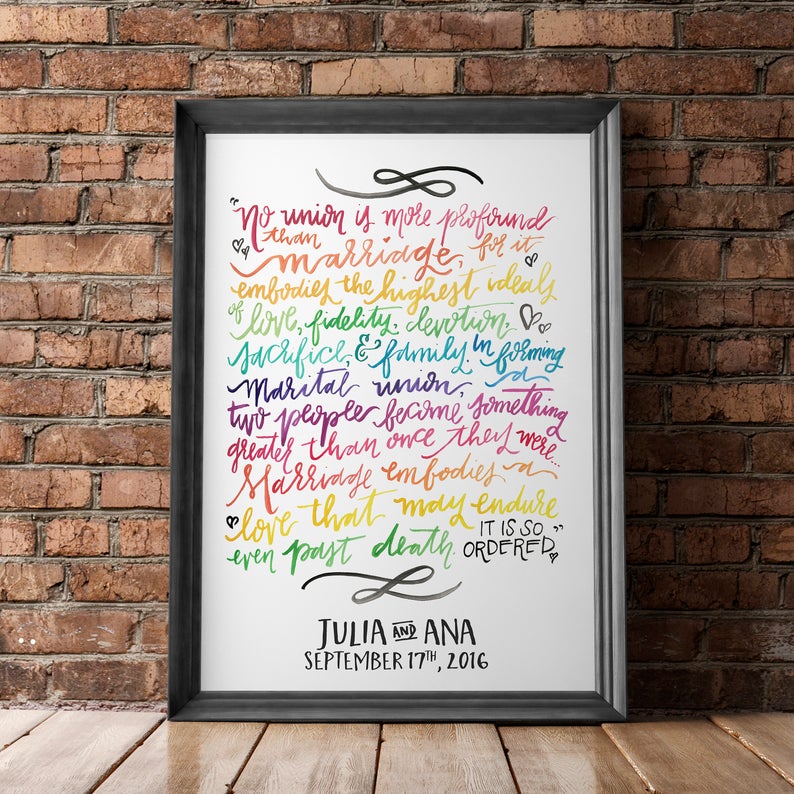 "No union is more profound
than
marriage, for it
embodies the highest ideals
of love, fidelity, devotion,
sacrifice, & family. In forming
marital union, a
two people become something
greater than once they were...
Marriage embodies a
love that may endure
even past death. IT IS SO
ORDERED."
JULIA AND ANA
SEPTEMBER 17TH, 2016